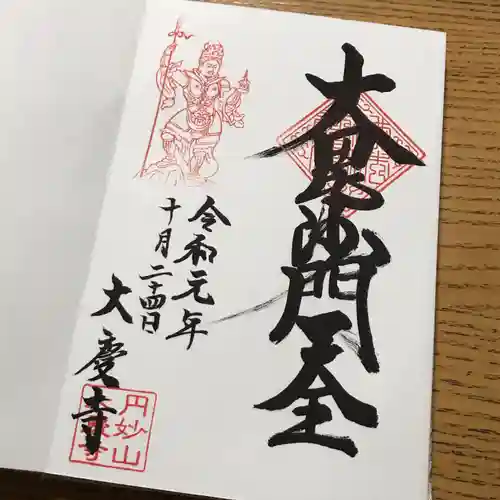 大毘沙門天全
令和元年
十月二十四日
大慶寺
円妙山
大慶寺